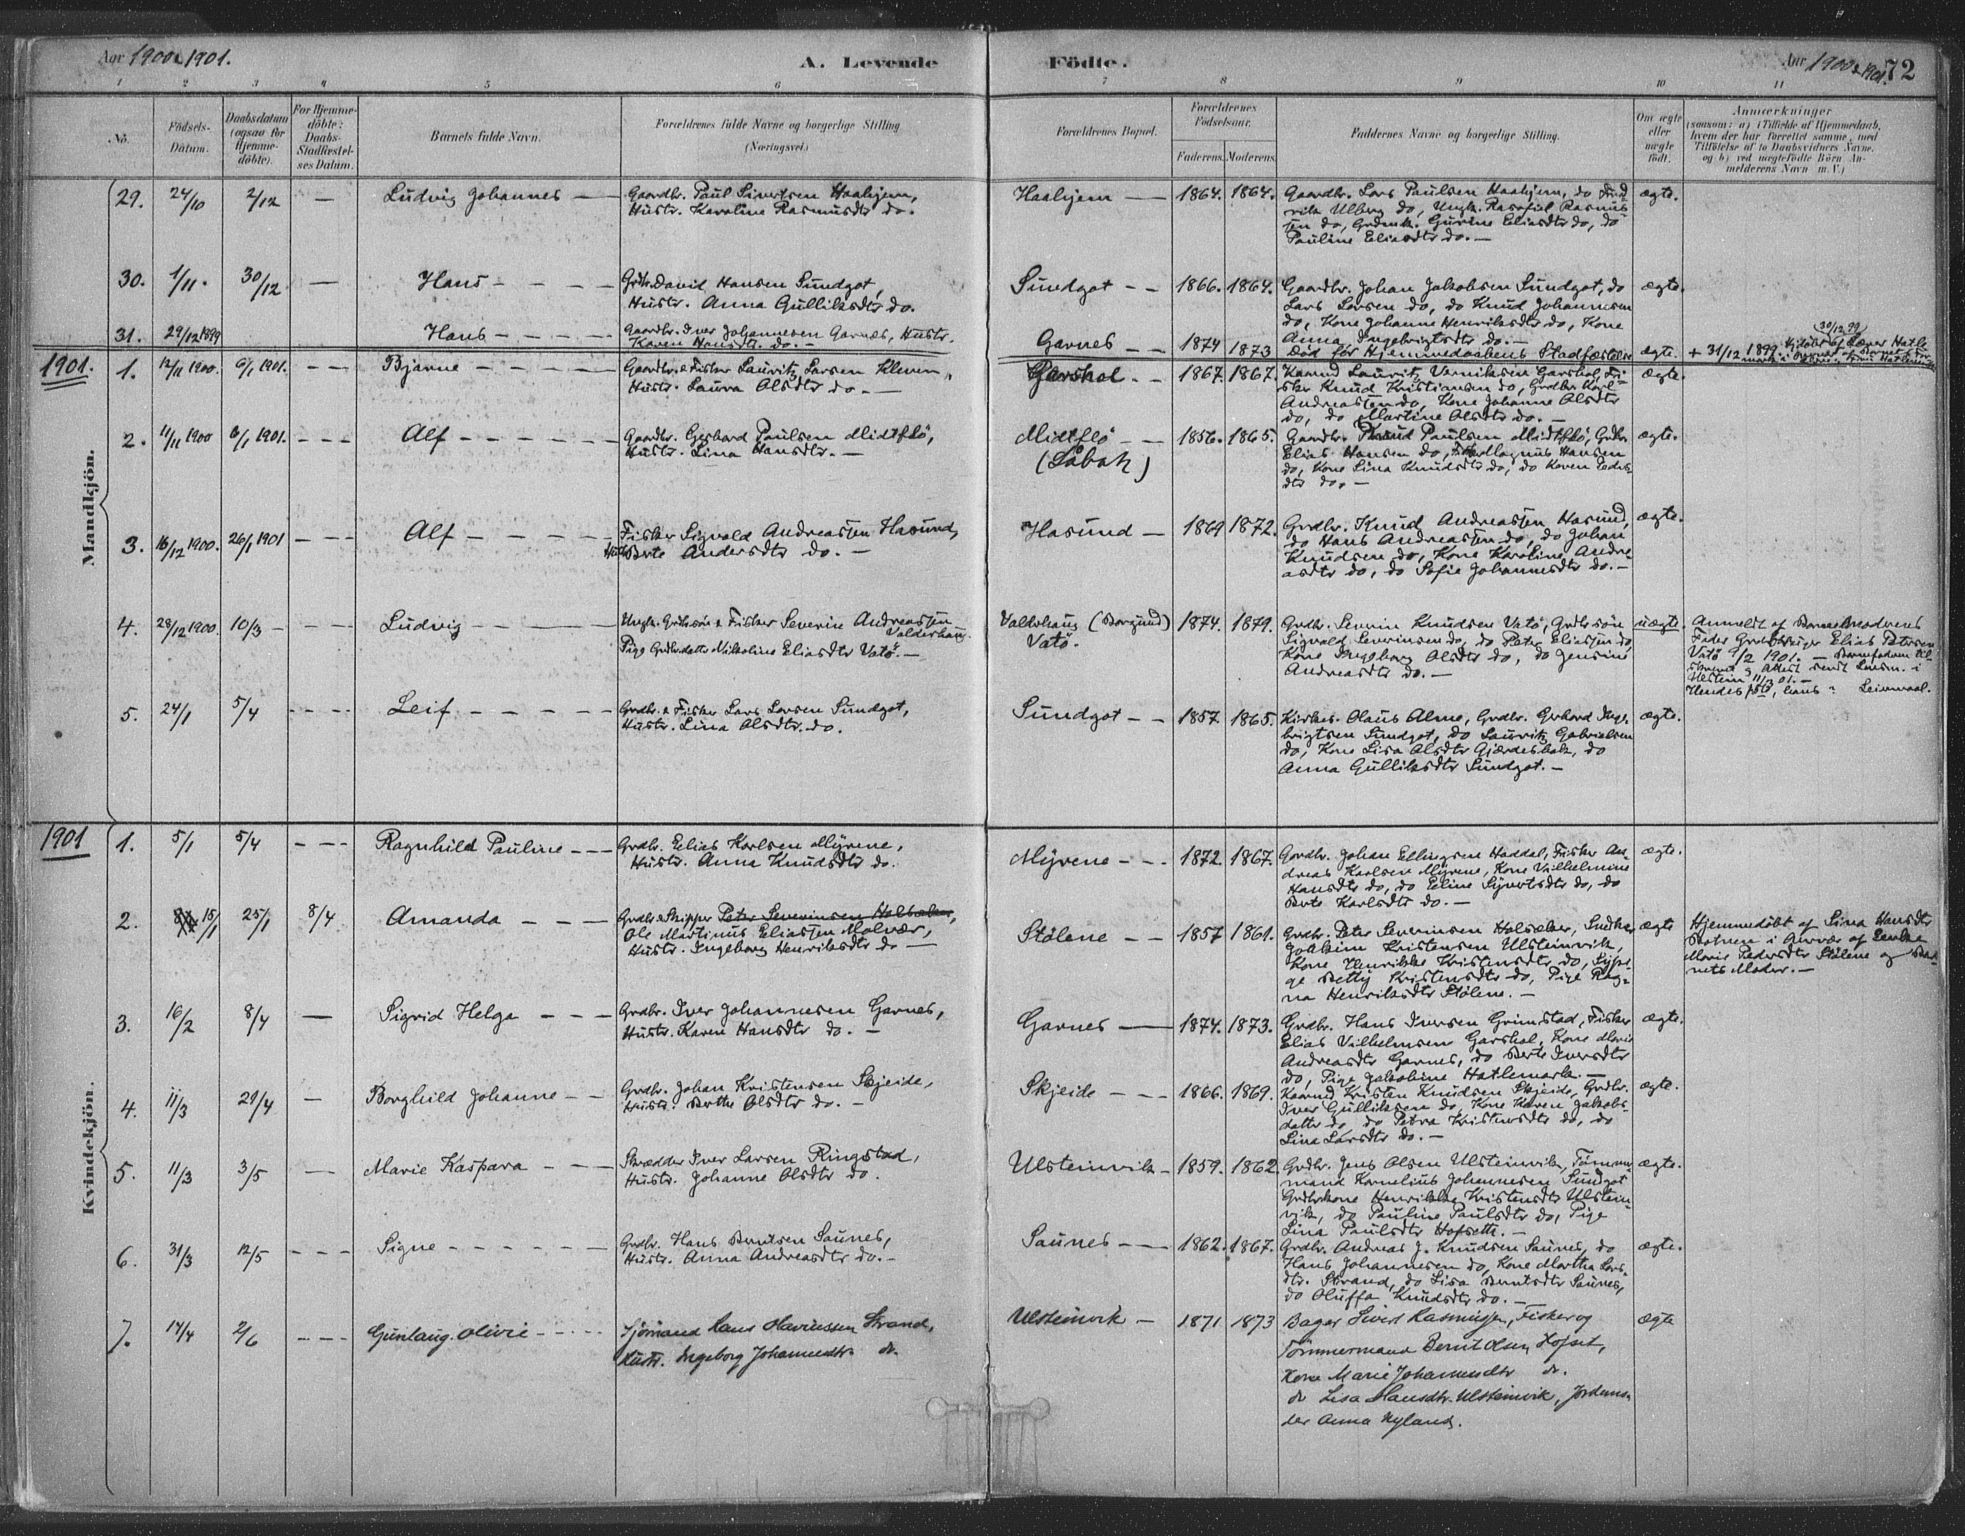 Aar 1900 & 1901.
A. Levende Födte.
Aar 1900 & 1901.
72
1 2 3 4 5 6 7 8 9 10 11
No.
Födsels-Datum.
Daabsdatum (ogsaa for Hjemmedöbte).
For Hjemmedöbte: Daabs-Stadfæstelses Datum.
Barnets fulde Navn.
Forældrenes fulde Navne og borgerlige Stilling (Næringsvei.)
Forældrenes Bopæl.
Forældrenes Födselsaar.
Faderens. Moderens.
Faddernes Navne og borgerlige Stilling.
Om ægte eller uægte födt.
Anmærkninger
(saasom: a) i Tilfælde af Hjemmedaab,
hvem der har forrettet samme, med
Tilföielse af to Daabsvidners Navne.
og b) ved uægtefödte Börn, Anmelderens Navn m. V.)
Mandkjön.
29. 24/10 2/12 — Ludvig Johannes —
Gaardbr. Paul Sivertsen Haahjem,
Hustr. Karoline Rasmusdtr do.
Haahjem — 1864. 1864.
Gaardbr. Lars Paulsen Haahjem, do Fredrik Ulberg do, Ungk. Rasmus
sen do, Grdmk. Gurine Eliasdtr do, do
Pauline Eliasdtr do. —
ægte.
30. 1/11. 30/12 — Hans - - - -
Grdbr. David Hansen Sundgot,
Hustr. Anna Gulliksdtr do.
Sundgot - - 1866. 1864.
Gaardbr. Johan Jakobsen Sundgot, do
Lars Larsen do, do Knud Johannesen
do, Kone Johanne Henriksdtr do, Kone
Anna Ingebrigtsdtr do. —
ægte.
31. 29/12 1899 Hans - - - -
Gaardbr. Iver Johannesen Garnes, Hustr.
Karen Hansdtr. do. —
Garnes — 1874 1873
Död för Hjemmedaabens Stadfæstelse
ægte.
+ 31/12 1899. Hjdöbt af Iver Hatle
1901.
1. 12/11 1900. 6/1 1901. - - Bjarne - - - -
Gaardbr. & Fisker Lauritz Larsen Kleven,
Hustr. Laura Olsdtr do. —
Garshol - - 1867. 1867.
Kaarmd Lauritz Garshol, Fisker Knud Kristiansen do, Grdbr. Karl
Andreassen do, Kone Johanne Olsdtr
do, do Martine Olsdtr do. —
ægte.
2. 11/11 1900 6/1 1901. - - - Alf - - - -
Gaardbr. Gerhard Paulsen Midtflö,
Hustr. Lina Hansdtr. —
Midtflö - -
(Sabak)
1856. 1865.
Gaardbr. Knud Paulsen Midtflö, Grdbr.
Elias Hansen do, Magnus Hansen
do, Kone Lina Knudsdtr do, do Karen Pedersdtr do. —
ægte.
3. 16/12 1900. 26/1 1901 - - - Alf - - - -
Fisker Sigvald Andreassen Hasund,
Hustr. Berte Andersdtr do. —
Hasund — 1869 1872.
Grdbr. Knud Andreassen Hasund,
do Hans Andreassen do, do Johan
Knudsen do, Kone Karoline Andreasdtr do, do Sofie Johannesdtr do. —
ægte.
4. 28/12 1900. 10/3 - - - - Ludvig - - - -
Ungk. Grdbrsön & Fisker Severin Andreassen
Valderhaug.
Pige Grdbrdatter Nikoline Eliasdtr Vatö. —
Valderhaug (Borgund)
Vatö.
1874. 1879.
Grdbr. Severin Knudsen Vatö, Grdbrsön
Sigvald Severinsen do, do Peter Eliassen do,
Kone Ingeborg Olsdtr do, do Jensine
Andreasdtr do. —
uægte.
Anmeldt af Barnemoderens
Fader Grdbruger Elias Petersen
Vatö 9/2 1901. —
Attest sendt Lensm. i
Ulstein 11/3 01. —
5. 24/1 5/4 - - - - Leif - - - -
Grdbr. & Fisker Lars Larsen Sundgot,
Hustr. Lina Olsdtr. do.
Sundgot - - 1857 1865.
Kirkes. Olaus Alme, Grdbr. Gerhard Ingebrigtsen Sundgot, do Lauritz Gabrielsen
do, Kone Lisa Olsdtr Gjerdesbak, do
Anna Gulliksdtr Sundgot. —
ægte.
Kvindekjön.
1901
1. 5/1 5/4 - - - Ragnhild Pauline - - -
Grdbr. Elias Karlsen Myrene,
Hustr. Anna Knudsdtr do.
Myrene - - - 1872 1867.
Gardbr. Johan Ellingsen Haddal, Fisker Andreas Karlsen Myrene, Kone Vilhelmine
Hansdtr do, do Eline Syvertsdtr do, do
Berte Karlsdtr do. —
ægte.
2. 15/1 25/1 8/4 Amanda - - -
Grdbr. & Skipper Peter Severinsen Holsæker,
Ole Martinus Eliassen Molvær,
Hustr. Ingeborg Henriksdtr do —
Stölene - - 1857 1861.
Grdbr. Peter Severinsen Holsæker, Snedker
Joakim Kristensen Ulsteinvik,
Kone Henrikke Kristensdtr do, Sypige Betty Kristensdtr do, Pige Ragna Henriksdtr Stölene. —
ægte
Hjemmedöbt af Lina Hansdtr
Marie Pedersdtr Stölene og Barnets Moder. —
3. 16/2 8/4 — Sigrid Helga - - -
Grdbr. Iver Johannesen Garnes,
Hustr. Karen Hansdtr do. —
Garnes — 1874. 1873.
Grdbr. Hans Iversen Grimstad, Fisker
Elias Vilhelmsen Garshol, Kone Marie
Andreasdtr Garnes, do Berte Iversdtr
do, Pige Jakobine Hatlemark. —
ægte.
4. 11/3 29/4 — Borghild Johanne - -
Grdbr. Johan Kristensen Skjeide,
Hustr. Berthe Olsdtr do. —
Skjeide - - - 1866. 1869.
Kaarmd Kristen Knudsen Skjeide, Grdbr.
Iver Gulliksen do, Kone Karen Jakobsdatter do, do Petra Kristensdtr do, do
Lina Larsdtr do. —
ægte.
5. 11/3 3/5 — Marie Kaspara - - -
Skrædder Iver Larsen Ringstad,
Hustr. Johanne Olsdtr do.
Ulsteinvik - 1859. 1862.
Grdbr. Jens Olsen Ulsteinvik, Tömmermand Kornelius Johannesen Sundgot
Grdbrkone Henrikke Kristensdtr Ulsteinvik, do Pauline Paulsdtr do, Pige
Lina Paulsdtr Hofseth. —
ægte.
6. 31/3 12/5 - - - Signe - - - -
Grdbr. Hans Berntsen Saunes,
Hustr. Anna Andreasdtr do. —
Saunes - - 1862. 1867.
Grdbr. Andreas J. Knudsen Saunes, do
Hans Johannesen do, Kone Martha Larsdtr. Strand, do Lisa Berntsdtr Saunes,
do Oluffa Knudsdtr do. —
ægte.
7. 14/4 2/6 - - - Gunlaug Olivie - - -
Sjömand Hans Olavussen Strand,
Hustr. Ingeborg Johannesdtr do.
Ulsteinvik — 1871 1873
Bager Sivert Rasmussen, Fisker og
Tömmermand Bernt Olsen Hofset,
Kone Marie Johannesdtr do.
do Lisa Hansdtr. Ulsteinvik, Jordemoder Anna Nyland.
ægte